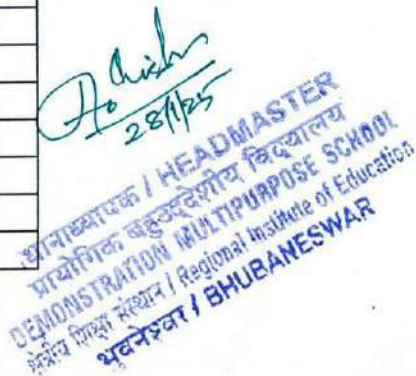 28/1/25
प्रधानाध्यापक / HEADMASTER
प्रायोगिक बहुउद्देशीय विद्यालय
DEMONSTRATION MULTIPURPOSE SCHOOL
क्षेत्रीय शिक्षा संस्थान / Regional Institute of Education
भुवनेश्वर / BHUBANESWAR